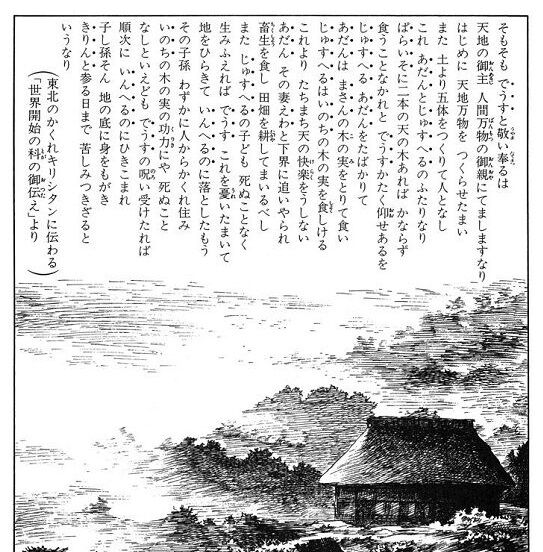 そもそも でうすと敬い奉るは
天地の御主 人間万物の御親にてましますなり
はじめに 天地万物を つくらせたまい
また 土より五体をつくりて人となし
これ あだんとじゅすへるのふたりなり
ぱらいそに二本の天の木あれば かならず
食うことなかれと でうすかたく仰せあるを
じゅすへる あだんをたばかりて
あだんは まさんの木の実をとりて食い
じゅすへるはいのちの木の実を食しける
これより たちまち天の快楽をうしない
あだん その妻えわと下界に追いやられ
畜生を食し 田畑を耕してまいるべし
また じゅすへるの子ども 死ぬことなく
生みふえれば でうす これを憂いたまいて
地をひらきて いんへるのに落としたもう
その子孫 わずかに人からかくれ住み
いのちの木の実の功力にや 死ぬこと
なしといえども でうすの呪い受けたれば
順次に いんへるのにひきこまれ
子し孫そん 地の底に身をもがき
きりんと参る日まで 苦しみつきざると
いうなり
（東北のかくれキリシタンに伝わる
「世界開始の科の御伝え」より）